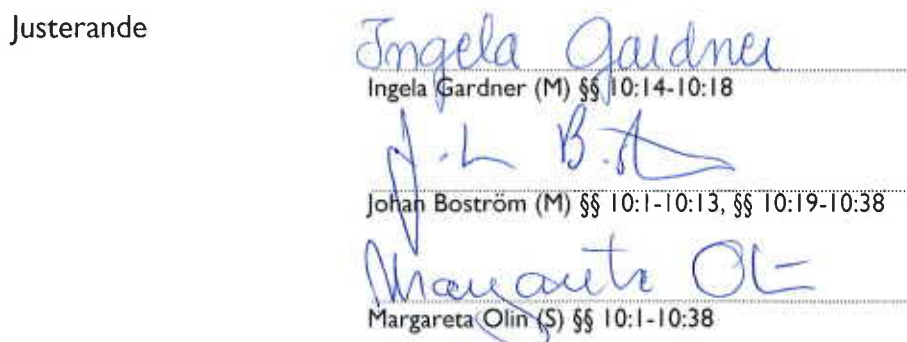 Justerande
Ingela Gardner
Ingela Gardner (M) §§ 10:14-10:18
Johan Boström (M) §§ 10:1-10:13, §§ 10:19-10:38
Margareta Olin
Margareta Olin (S) §§ 10:1-10:38